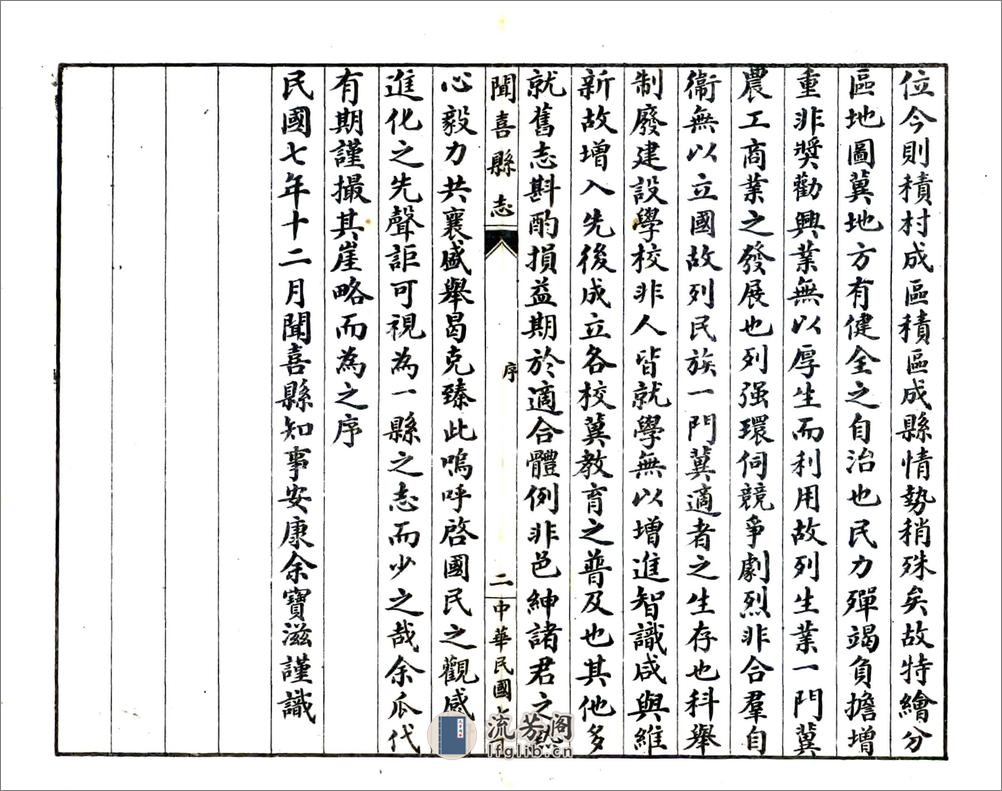 位今則積村成區積區成縣情勢稍殊矣故特繪分
區地圖冀地方有健全之自治也民力殫竭負擔增
重非獎勸興業無以厚生而利用故列生業一門冀
農工商業之發展也列强環伺競爭劇烈非合羣自
衞無以立國故列民族一門冀適者之生存也科舉
制廢建設學校非人皆就學無以增進智識咸與維
新故增入先後成立各校冀教育之普及也其他多
就舊志斟酌損益期於適合體例非邑紳諸君之
聞喜縣志
序
二
中華民國
心毅力共襄盛舉曷克臻此嗚呼啓國民之觀感
進化之先聲詎可視為一縣之志而少之哉余瓜代
有期謹撮其崖略而為之序
民國七年十二月聞喜縣知事安康余寶滋謹識
流芳阁
lfglib.cn